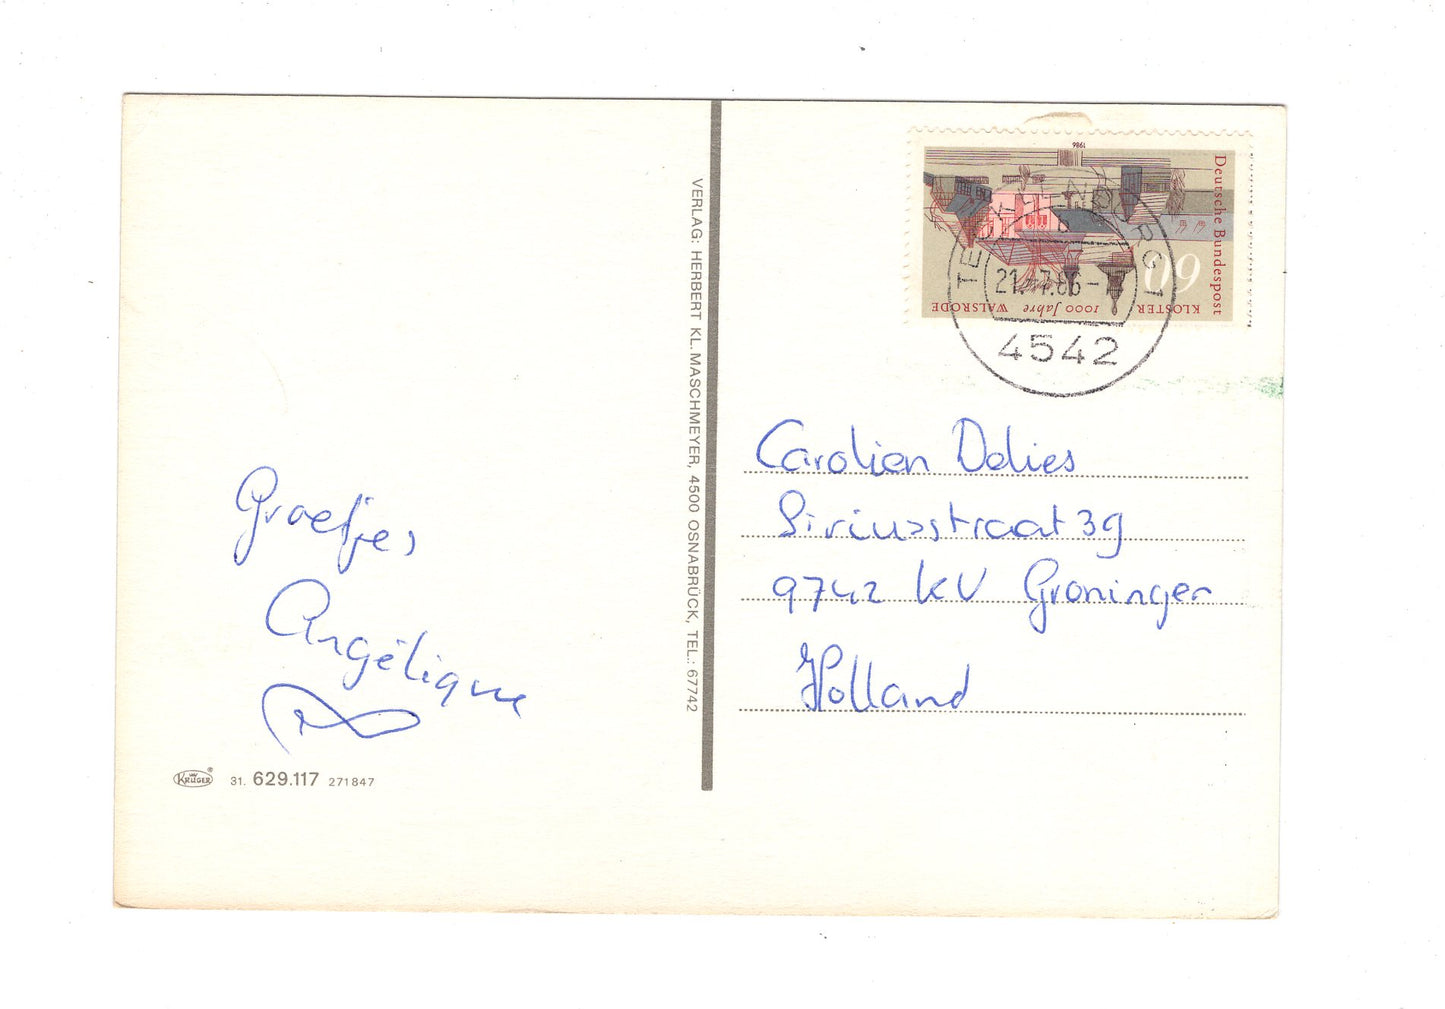 Groetjes,
Angélique
KRÜGER® 31. 629.117 271847
VERLAG: HERBERT KL. MASCHMEYER, 4500 OSNABRÜCK, TEL.: 67742
1986
Deutsche Bundespost
60
KLOSTER 1000 Jahre WALSRODE
21.-7.86-17
4542
Carolien Delies
Siriusstraat 39
9742 KV Groningen
Holland